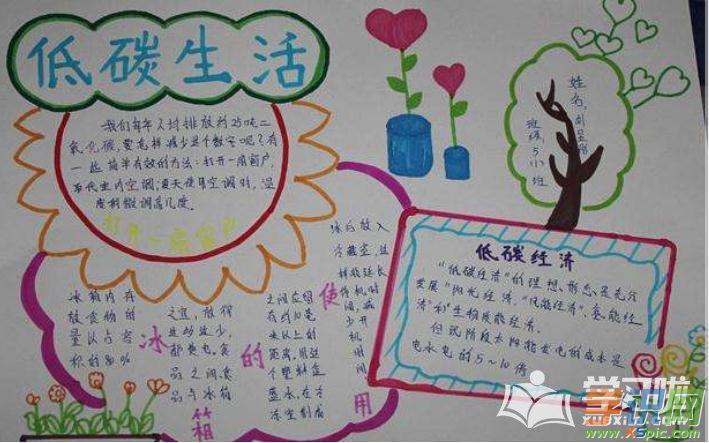 低碳生活
我们每年人均排放约25吨二
氧化碳,要怎样减少这个数字呢?有
一些简单有效的方法:打开一扇窗户,
取代室内空调;夏天使用空调时,温
度稍微调高几度。
打开一扇窗户
姓名:
班级:5(1)班
冰箱的使用
冰箱内存
放食物的
量以占容
积的80%
之宜,放得
过多或过少,
都费电。食
品之间、食
品与冰箱
之间应留
有约10毫
米以上的
距离。用数
个塑料盒
盛水,在冷
冻室制成
冰后放入
冷藏室,这
样能延长
停机时
间,减
少开
机时间
低碳经济
"低碳经济"的理想、形态是充分
发展"阳光经济"、"风能经济"、氢能经
济"和"生物质能经济。
但现阶段太阳能发电的成本是
电水电的5~10倍
学习啦
www.xuexila.com
www.XSpic.com